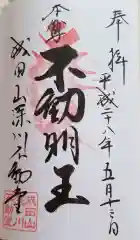 奉拝
平成二十八年五月十三日
本尊
不動明王
成田山深川不動堂